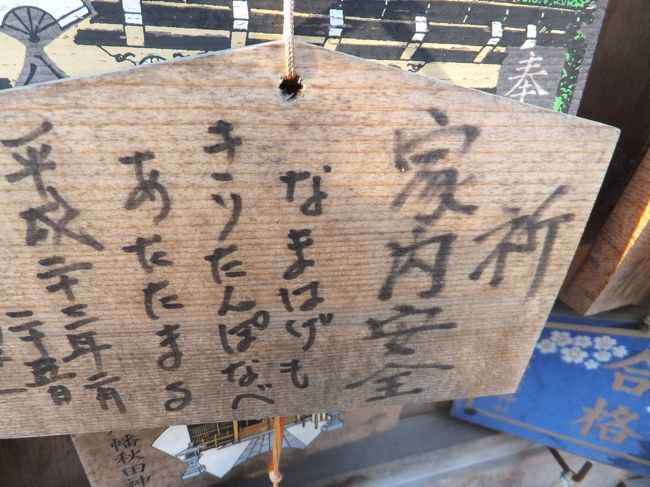 奉
祈
家内安全
なまはげも
きりたんぽなべ
あたたまる
平成二十二年二月
二十五日
合格
幡秋田神